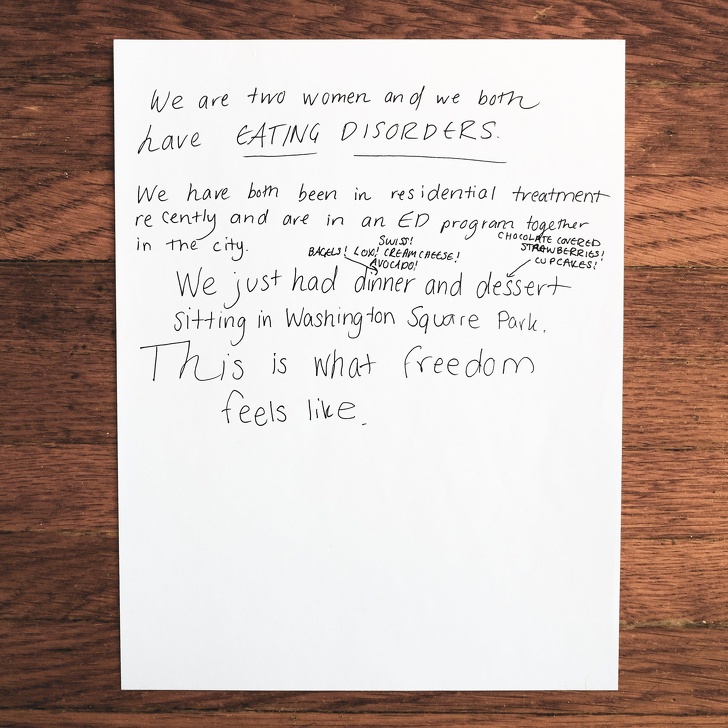 We are two women and we both
have EATING DISORDERS.
We have both been in residential treatment
recently and are in an ED program together
in the city.
SWISS!
BAGELS! LOX! CREAM CHEESE!
AVOCADO!
CHOCOLATE COVERED
STRAWBERRIES!
CUPCAKES!
We just had dinner and dessert
sitting in Washington Square Park.
This is what freedom
feels like.